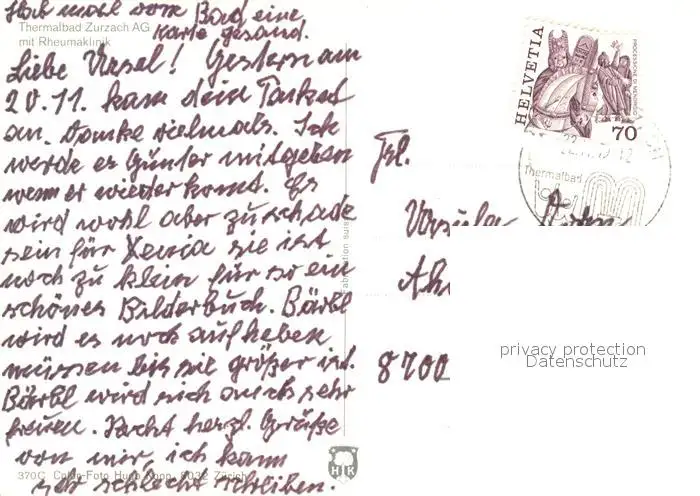 Hab wohl vom Bad eine
Karte gesand.
Thermalbad Zurzach AG
mit Rheumaklinik
Liebe Ursel! Gestern am
20.11. kam dein Packet
an. Danke vielmals. Ich
werde es Günter mitgeben
wenn er wieder komt. Es
wird wohl aber zu schade
sein für Xenia sie ist
noch zu klein für so ein
schönes Bilderbuch. Bärbl
wird es noch aufheben
müssen bis sie größer ist.
Bärbl wird sich auch sehr
freuen. Recht herzl. Grüße
von mir, ich kann
sehr schlecht schreiben.
370C Color-Foto Hugo Kopp, 8032 Zürich
HK
HELVETIA
70
Thermalbad
Frl.
Ursula
8700
privacy protection
Datenschutz